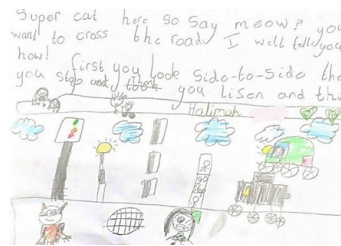 Super cat here so say meow? you
want to cross the road I well tell you
how!
first you look side-to-side the
you stop and look you lisen and thi
Halimah